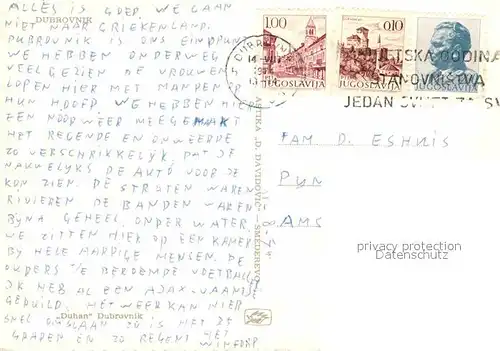 ALLES IS GOED. WE GAAN
DUBROVNIK
NIET NAAR GRIEKENLAND.
DUBROVNIK IS ONS EINDPUNT
WE HEBBEN ONDERWEG
VEEL GEZIEN DE VROUWEN
LOPEN HIER MET MANDEN OP
HUN HOOFD WE HEBBEN HIER
EEN NOODWEER MEEGEMAKT
HET REGENDE EN ONWEERDE
ZO VERSCHRIKKELYK, DAT JE
NAUWELYKS DE AUTO VOOR JE
KON ZIEN. DE STRATEN WAREN
RIVIEREN DE BANDEN WAREN
BYNA GEHEEL ONDER WATER.
WE ZITTEN HIER OP EEN KAMER
BY HELE AARDIGE MENSEN. DE
OUDERS V/E BEROEMDE VOETBALL
IK HEB AL EEN AJAX-VAANTJE
GERUILD. HET WEER KAN HIER
"Duhan" Dubrovnik
SNEL OMSLAAN ZO IS HET
GRADEN EN ZO REGENT HET
ANTIKA „D. DAVIDOVIĆ" — SMEDEREVO
1.00
JUGOSLAVIJA
0.10
JUGOSLAVIJA
JUGOSLAVIJA
DUBROVNIK
14
SVJETSKA GODINA
STANOVNIŠTVA
JEDAN SVIJET ZA SV
FAM D. ESHUIS
AMS
privacy protection
Datenschutz